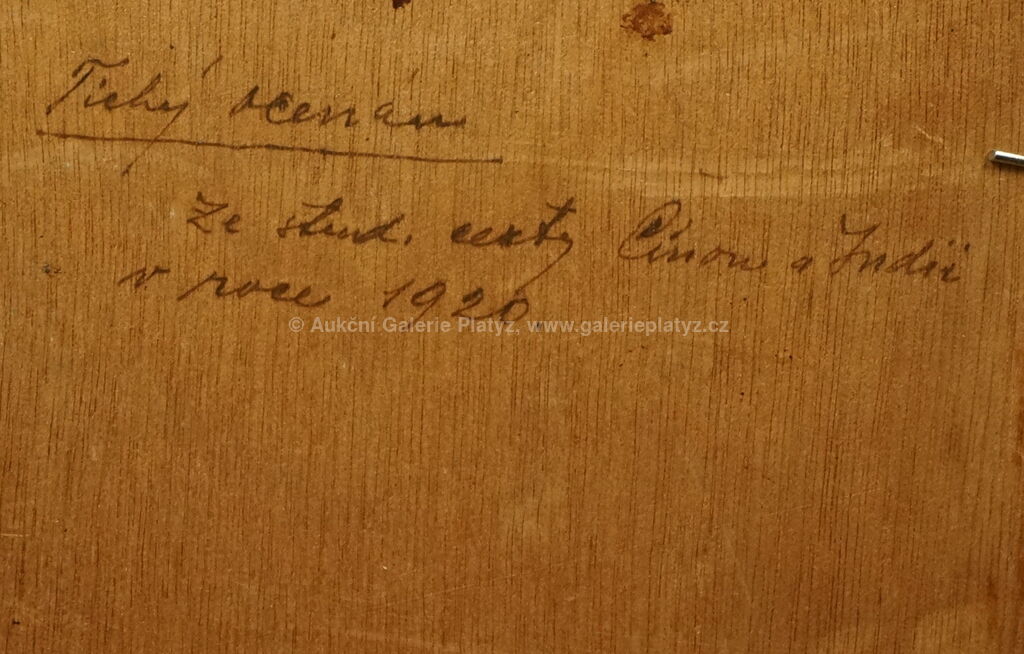 Tichý ocenán
Ze stud. cesty Čínou a Indií
v roce 1920
© Aukční Galerie Platýz, www.galerieplatyz.cz